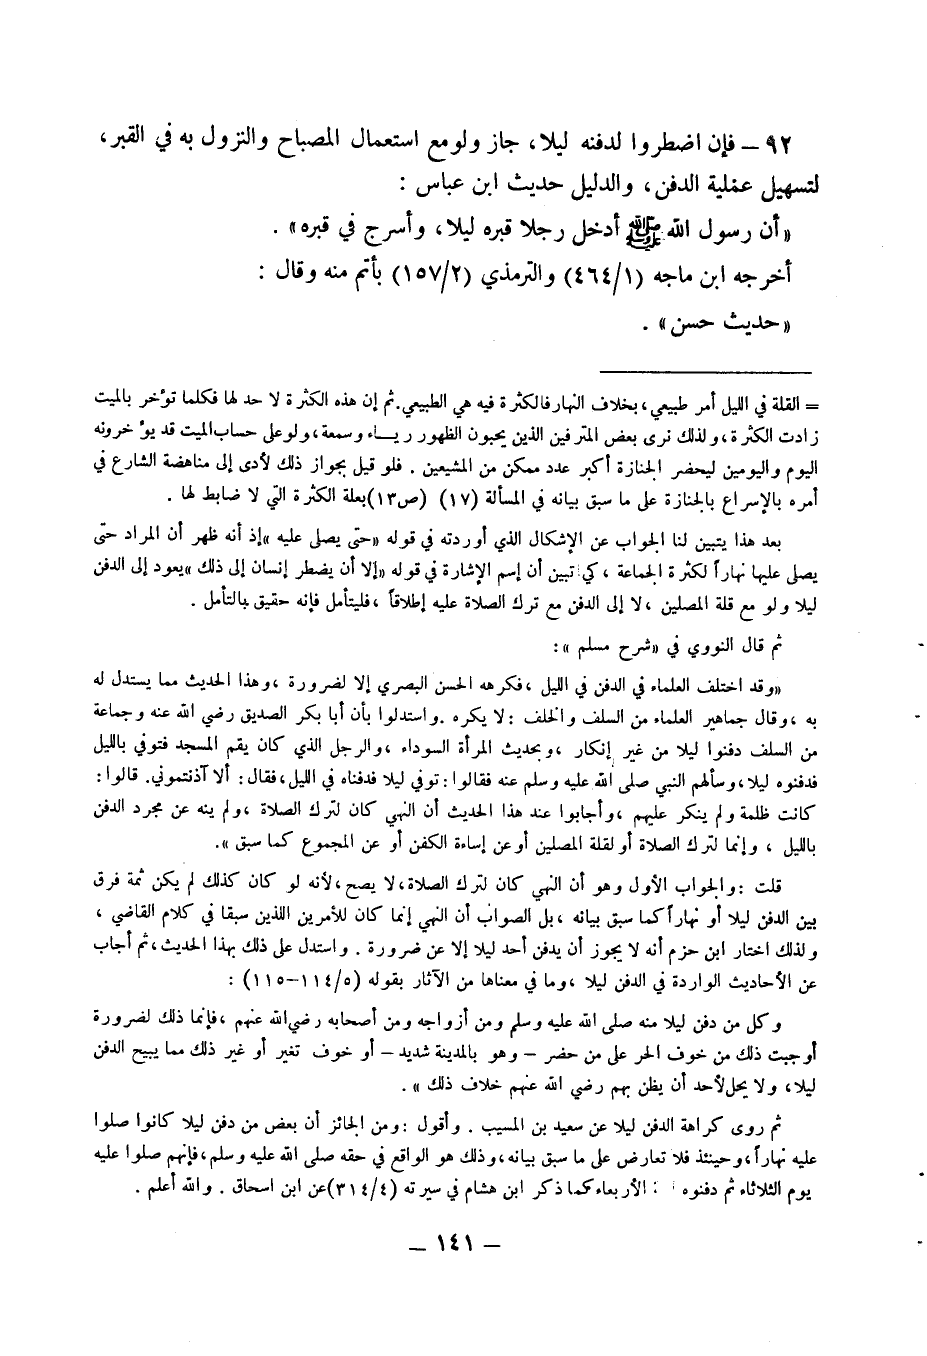 ٩٢ – فإن اضطروا لدفنه ليلا، جاز ولو مع استعمال المصباح والنزول به في القبر،
لتسهيل عملية الدفن، والدليل حديث ابن عباس :
«أن رسول الله ﷺ أدخل رجلا قبره ليلا، وأسرج في قبره» .
أخرجه ابن ماجه (٤٦٤/١) والترمذي (١٥٧/٢) بأتم منه وقال :
«حديث حسن» .
= القلة في الليل أمر طبيعي، بخلاف النهار فالكثرة فيه هي الطبيعي. ثم إن هذه الكثرة لا حد لها فكلما تؤخر بالميت
زادت الكثرة، ولذلك نرى بعض المترفين الذين يحبون الظهور رياء وسمعة، ولو على حساب الميت قد يؤخرونه
اليوم واليومين ليحضر الجنازة أكبر عدد ممكن من المشيعين . فلو قيل بجواز ذلك لأدى إلى مناهضة الشارع في
أمره بالإسراع بالجنازة على ما سبق بيانه في المسألة (١٧) (ص١٣) بعلة الكثرة التي لا ضابط لها .
بعد هذا يتبين لنا الجواب عن الإشكال الذي أوردته في قوله «حتى يصلى عليه» إذ أنه ظهر أن المراد حتى
يصلى عليها نهاراً لكثرة الجماعة ، كي تبين أن إسم الإشارة في قوله «إلا أن يضطر إنسان إلى ذلك» يعود إلى الدفن
ليلا ولو مع قلة المصلين ، لا إلى الدفن مع ترك الصلاة عليه إطلاقاً ، فليتأمل فإنه حقيق بالتأمل .
ثم قال النووي في «شرح مسلم» :
«وقد اختلف العلماء في الدفن في الليل ، فكرهه الحسن البصري إلا لضرورة ، وهذا الحديث مما يستدل له
به ، وقال جماهير العلماء من السلف والخلف : لا يكره . واستدلوا بأن أبا بكر الصديق رضي الله عنه وجماعة
من السلف دفنوا ليلا من غير إنكار ، وبحديث المرأة السوداء ، والرجل الذي كان يقم المسجد فتوفي بالليل
فدفنوه ليلا ، وسألهم النبي صلى الله عليه وسلم عنه فقالوا : توفي ليلا فدفناه في الليل ، فقال : ألا آذنتموني. قالوا :
كانت ظلمة ولم ينكر عليهم ، وأجابوا عند هذا الحديث أن النهي كان لترك الصلاة ، ولم ينه عن مجرد الدفن
بالليل ، وإنما لترك الصلاة أو لقلة المصلين أو عن إساءة الكفن أو عن المجموع كما سبق» .
قلت : والجواب الأول وهو أن النهي كان لترك الصلاة، لا يصح ، لأنه لو كان كذلك لم يكن ثمة فرق
بين الدفن ليلا أو نهاراً كما سبق بيانه ، بل الصواب أن النهي إنما كان للأمرين اللذين سبقا في كلام القاضي ،
ولذلك اختار ابن حزم أنه لا يجوز أن يدفن أحد ليلا إلا عن ضرورة . واستدل على ذلك بهذا الحديث ، ثم أجاب
عن الأحاديث الواردة في الدفن ليلا ، وما في معناها من الآثار بقوله (١١٤/٥–١١٥) :
وكل من دفن ليلا منه صلى الله عليه وسلم ومن أزواجه ومن أصحابه رضي الله عنهم ، فإنما ذلك لضرورة
أوجبت ذلك من خوف الحر على من حضر – وهو بالمدينة شديد – أو خوف تغير أو غير ذلك مما يبيح الدفن
ليلا، ولا يحل لأحد أن يظن بهم رضي الله عنهم خلاف ذلك» .
ثم روى كراهة الدفن ليلا عن سعيد بن المسيب . وأقول : ومن الجائز أن بعض من دفن ليلا كانوا صلوا
عليه نهاراً، وحينئذ فلا تعارض على ما سبق بيانه ، وذلك هو الواقع في حقه صلى الله عليه وسلم ، فإنهم صلوا عليه
يوم الثلاثاء ثم دفنوه الأربعاء كما ذكر ابن هشام في سيرته (٣١٤/٤) عن ابن اسحاق . والله أعلم .
– ١٤١ –